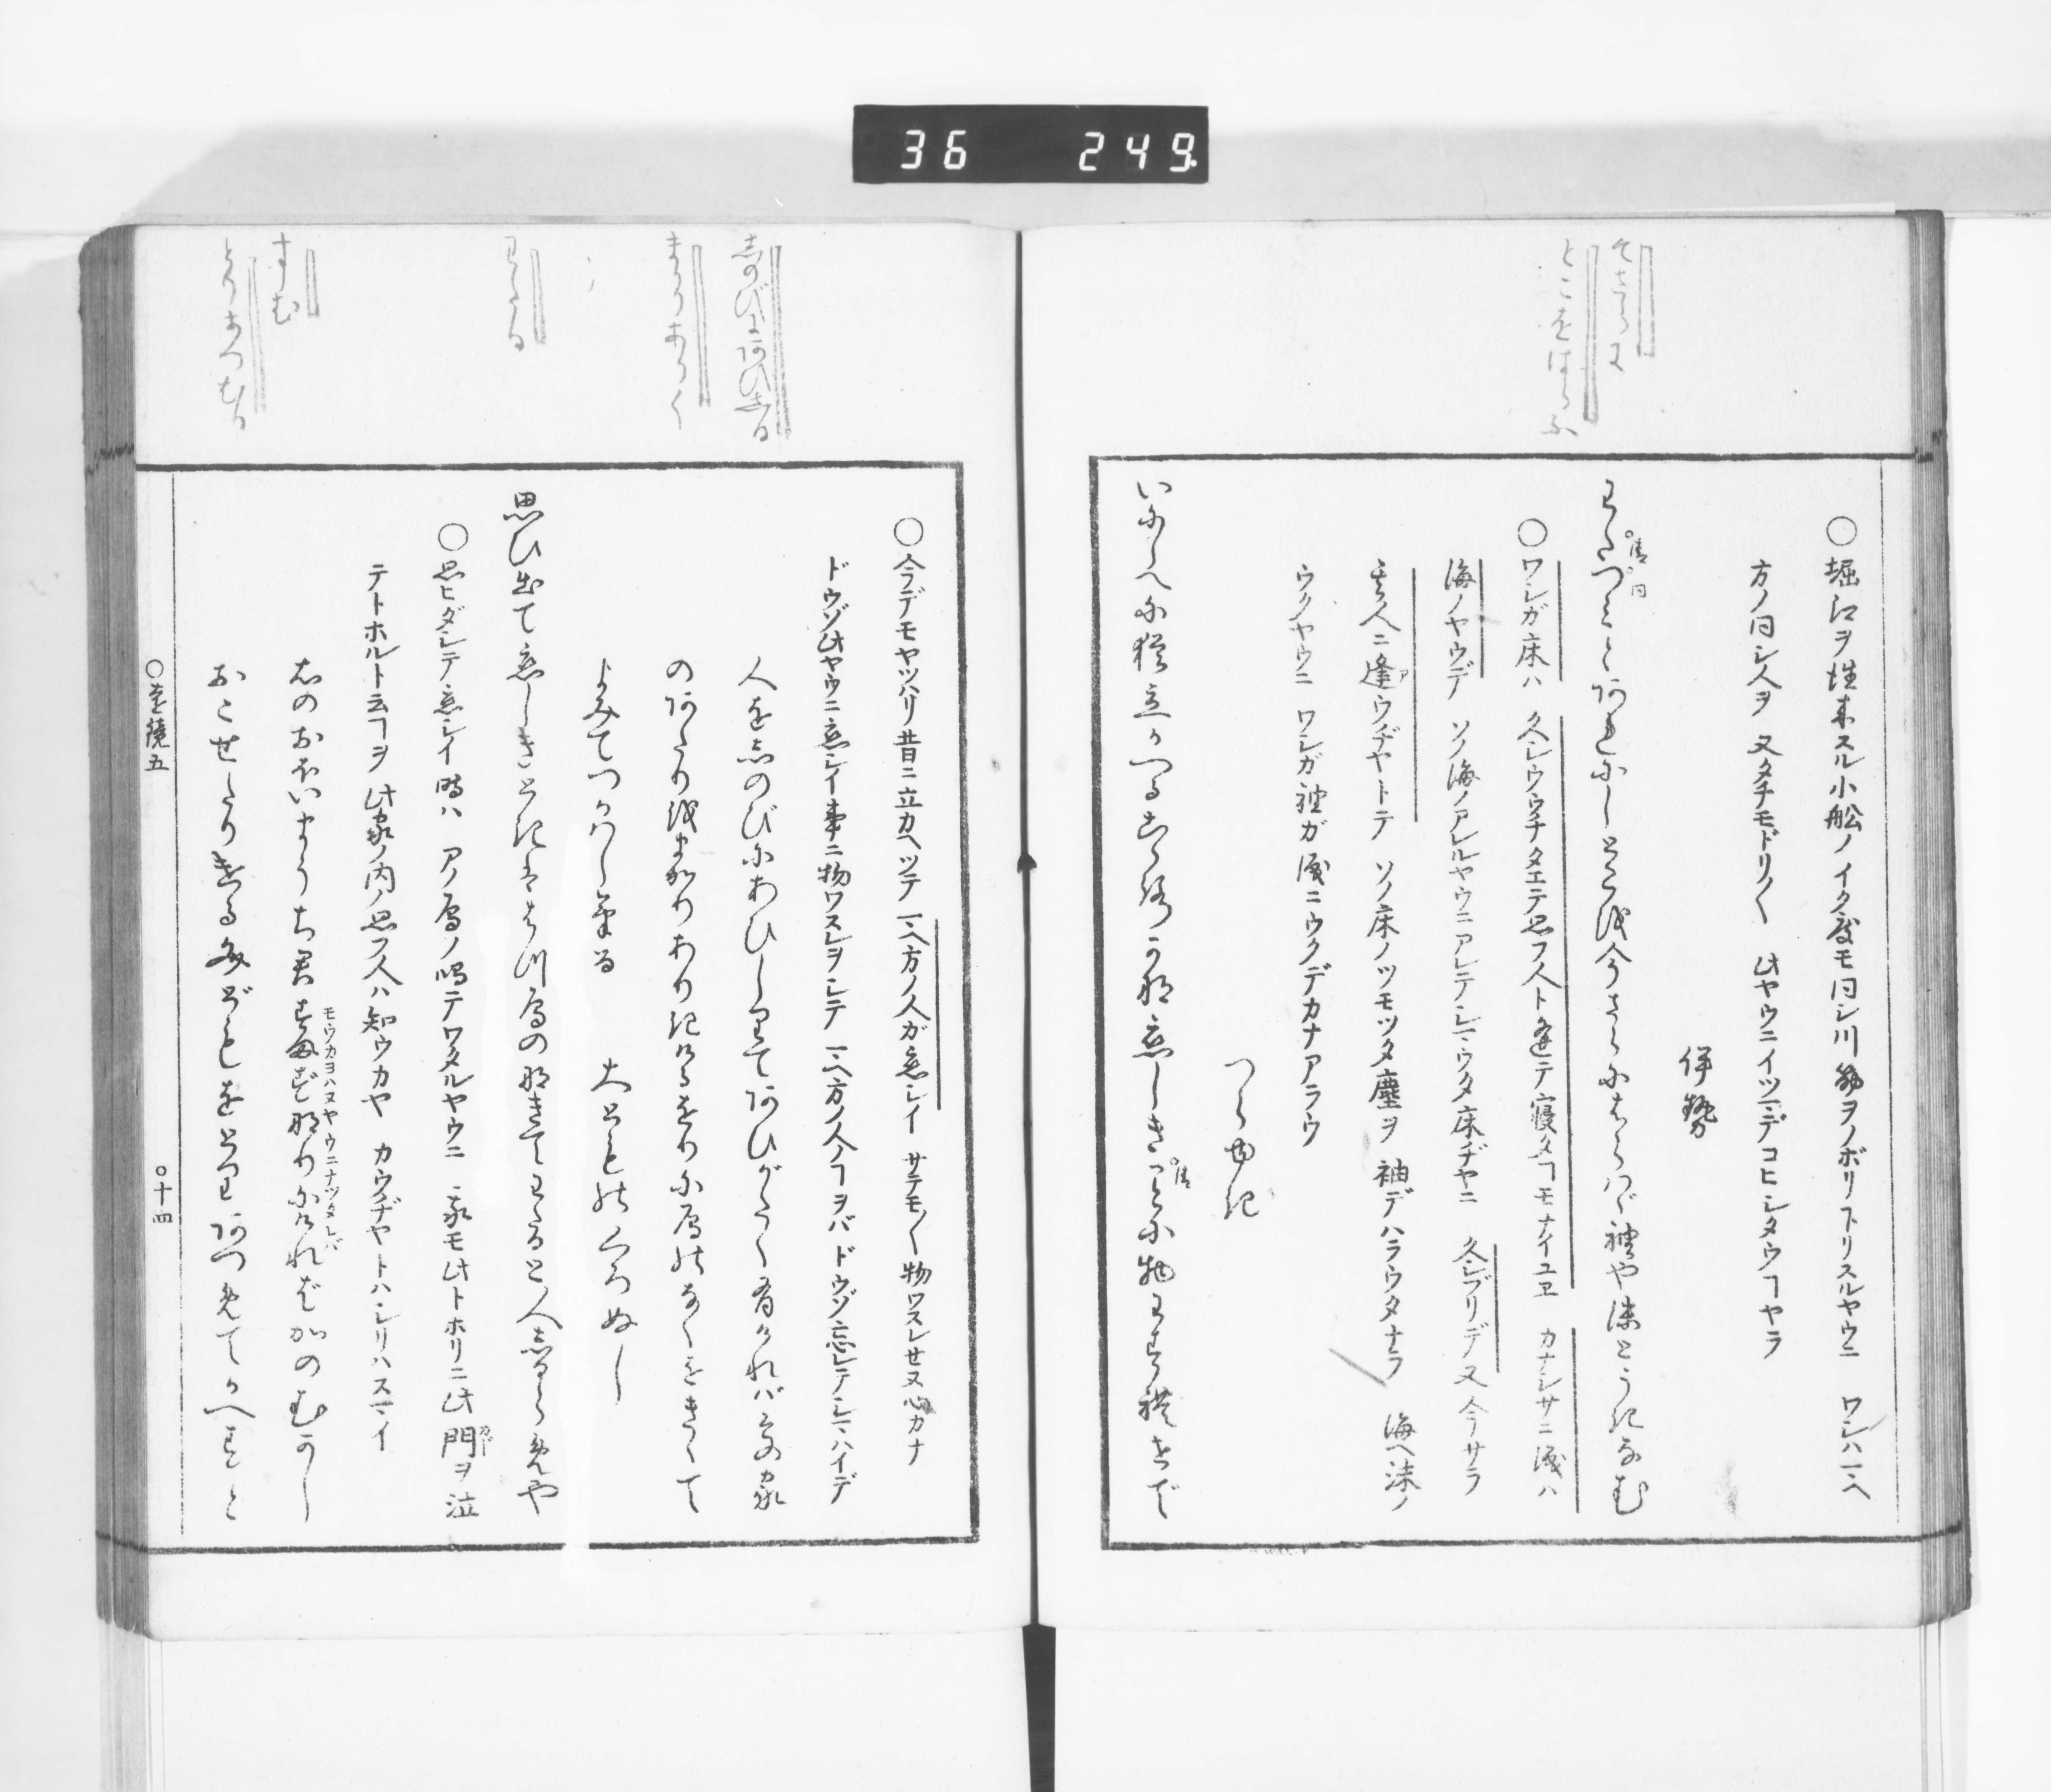 36 249
そさらに
とこをはらふ
○堀江ヲ徃来スル小舩ノイク度モ同シ川筋ヲノボリ下リスルヤウニ ワシハマヘ
方ノ同シ人ヲ 又タチモドリ〱 此ヤウニイツマデコヒシタウヿヤラ
伊勢
わたつみとあれにしとこを今さらにはらはゞ袖や沫とうきなむ
清 同
○ワシガ床ハ 久シウウチタエテ思フ人ト逢テ寝タヿモナイユヱ カナシサニ涙ハ
海ノヤウデ ソノ海ノアレルヤウニアレテシマウタ床ヂヤニ 久シブリデ又今サラ
其人ニ逢ウヂヤトテ ソノ床ノツモツタ塵ヲ 袖デハラウタナラ 海ヘ沫ノ
ウクヤウニ ワシガ袖ガ涙ニウクデカナアラウ
つらゆき
いにしへに猶立かへるこゝろかな恋しきことに物わすれせで
清
しのびにあひしる
まかりありく
わたる
すむ
とりあつむる
○今デモヤツハリ昔ニ立カヘツテ マヘ方ノ人ガ恋シイ サテモ〱物ワスレセヌ心カナ
ドウゾ此ヤウニ恋シイ事ニ物ワスレヲシテ マヘ方ノ人ノヿヲバ ドウゾ忘レテシマハイデ
人をしのびにあひしりてあひがたく有ければその家
のあたりをまかりありきけるをりに鴈のなくをきゝて
よみてつかはしける 大とものくろぬし
思ひ出て恋しきときははつ鴈の鳴きてわたると人しるらめや
○思ヒダシテ恋シイ時ハ アノ鴈ノ鳴テワタルヤウニ 我モ此トホリニ此門ヲ泣
テトホルト云ヿヲ 此家ノ内ノ思フ人ハ知ウカヤ カウヂヤトハシリハスマイ
右のおほいまうち君すまずなりにければかのむかし
モウカヨハヌヤウニナツタレバ
おこせたりける文どもをとりあつめてかへすと
○遠鏡五 ○十四